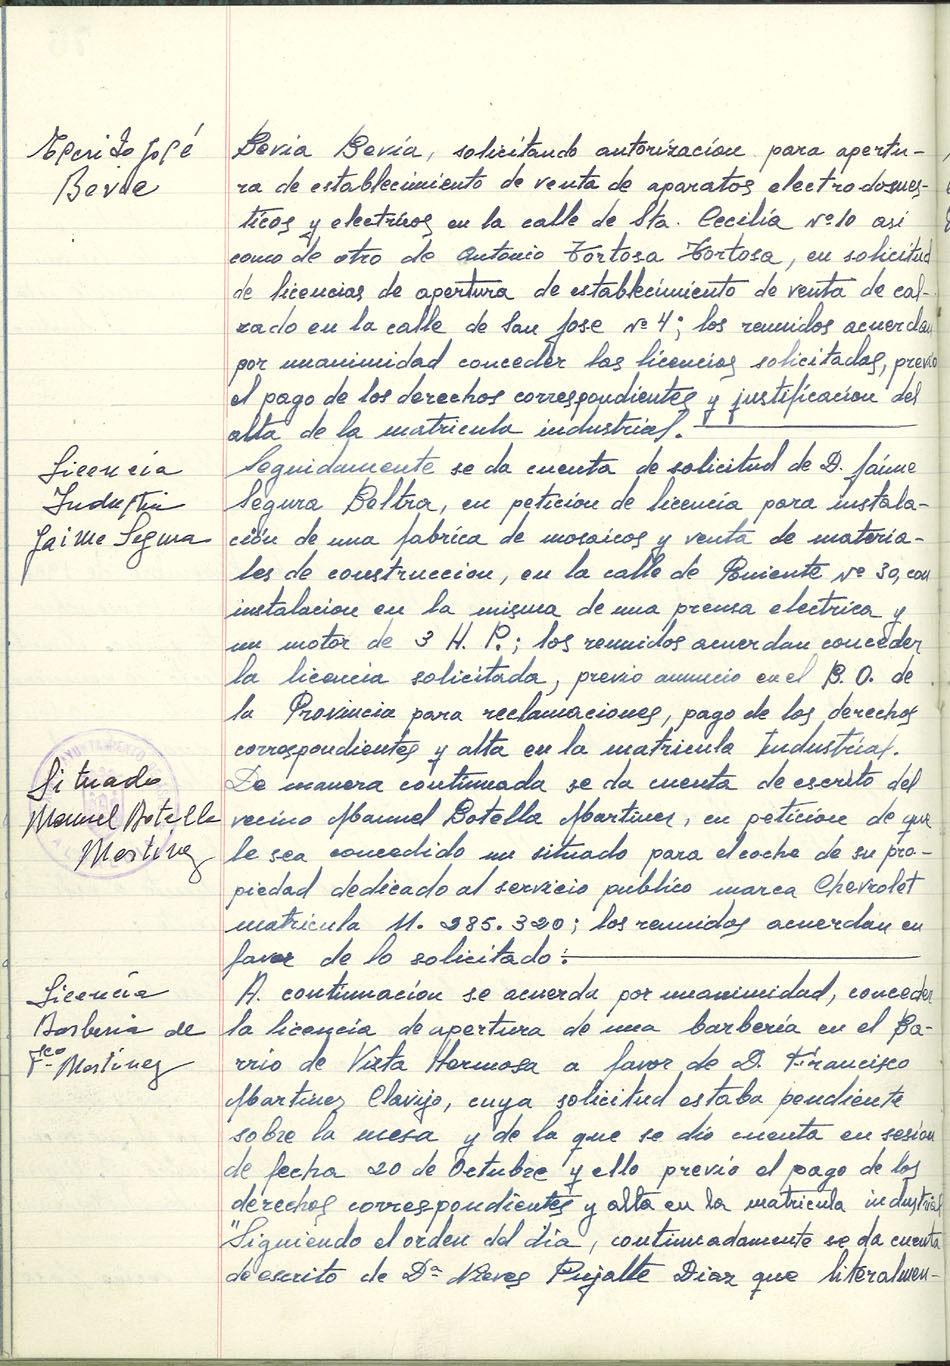 Escrito José
Bevia
Bevia Bevía, solicitando autorizacion para apertu-
ra de establecimiento de venta de aparatos electrodomes-
ticos y electricos en la calle de Sta. Cecilia Nº 10 asi
como de otro de Antonio Tortosa Tortosa, en solicitud
de licencias de apertura de establecimiento de venta de cal-
zado en la calle de San Jose Nº 4; los reunidos acuerdan
por unanimidad conceder las licencias solicitadas, previo
el pago de los derechos correspondientes y justificacion del
alta de la matricula industrial.
Licencia
Industria
Jaime Segura
Seguidamente se da cuenta de solicitud de D. Jaime
Segura Beltra, en peticion de licencia para instala-
ción de una fabrica de mosaicos y venta de materia-
les de construccion, en la calle de Poniente Nº 30, con
instalacion en la misma de una prensa electrica y
un motor de 3 H. P.; los reunidos acuerdan conceder
la licencia solicitada, previo anuncio en el B. O. de
la Provincia para reclamaciones, pago de los derechos
correspondientes y alta en la matricula Industrial.
Situado
Manuel Botella
Martinez
De manera continuada se da cuenta de escrito del
vecino Manuel Botella Martinez, en peticion de que
le sea concedido un situado para el coche de su pro-
piedad dedicado al servicio publico marca Chevrolet
matricula M. 285.320; los reunidos acuerdan en
favor de lo solicitado:
Licencia
Barberia de
Fco Martinez
A. continuacion se acuerda por unanimidad, conceder
la licencia de apertura de una barbería en el Ba-
rrio de Vista Hermosa a favor de D. Francisco
Martinez Clavijo, cuya solicitud estaba pendiente
sobre la mesa y de la que se dio cuenta en sesion
de fecha 20 de Octubre y ello previo el pago de los
derechos correspondientes y alta en la matricula industrial
"Siguiendo el orden del dia, continuadamente se da cuenta
de escrito de Dª Nieves Pujalte Diaz que literalmen-